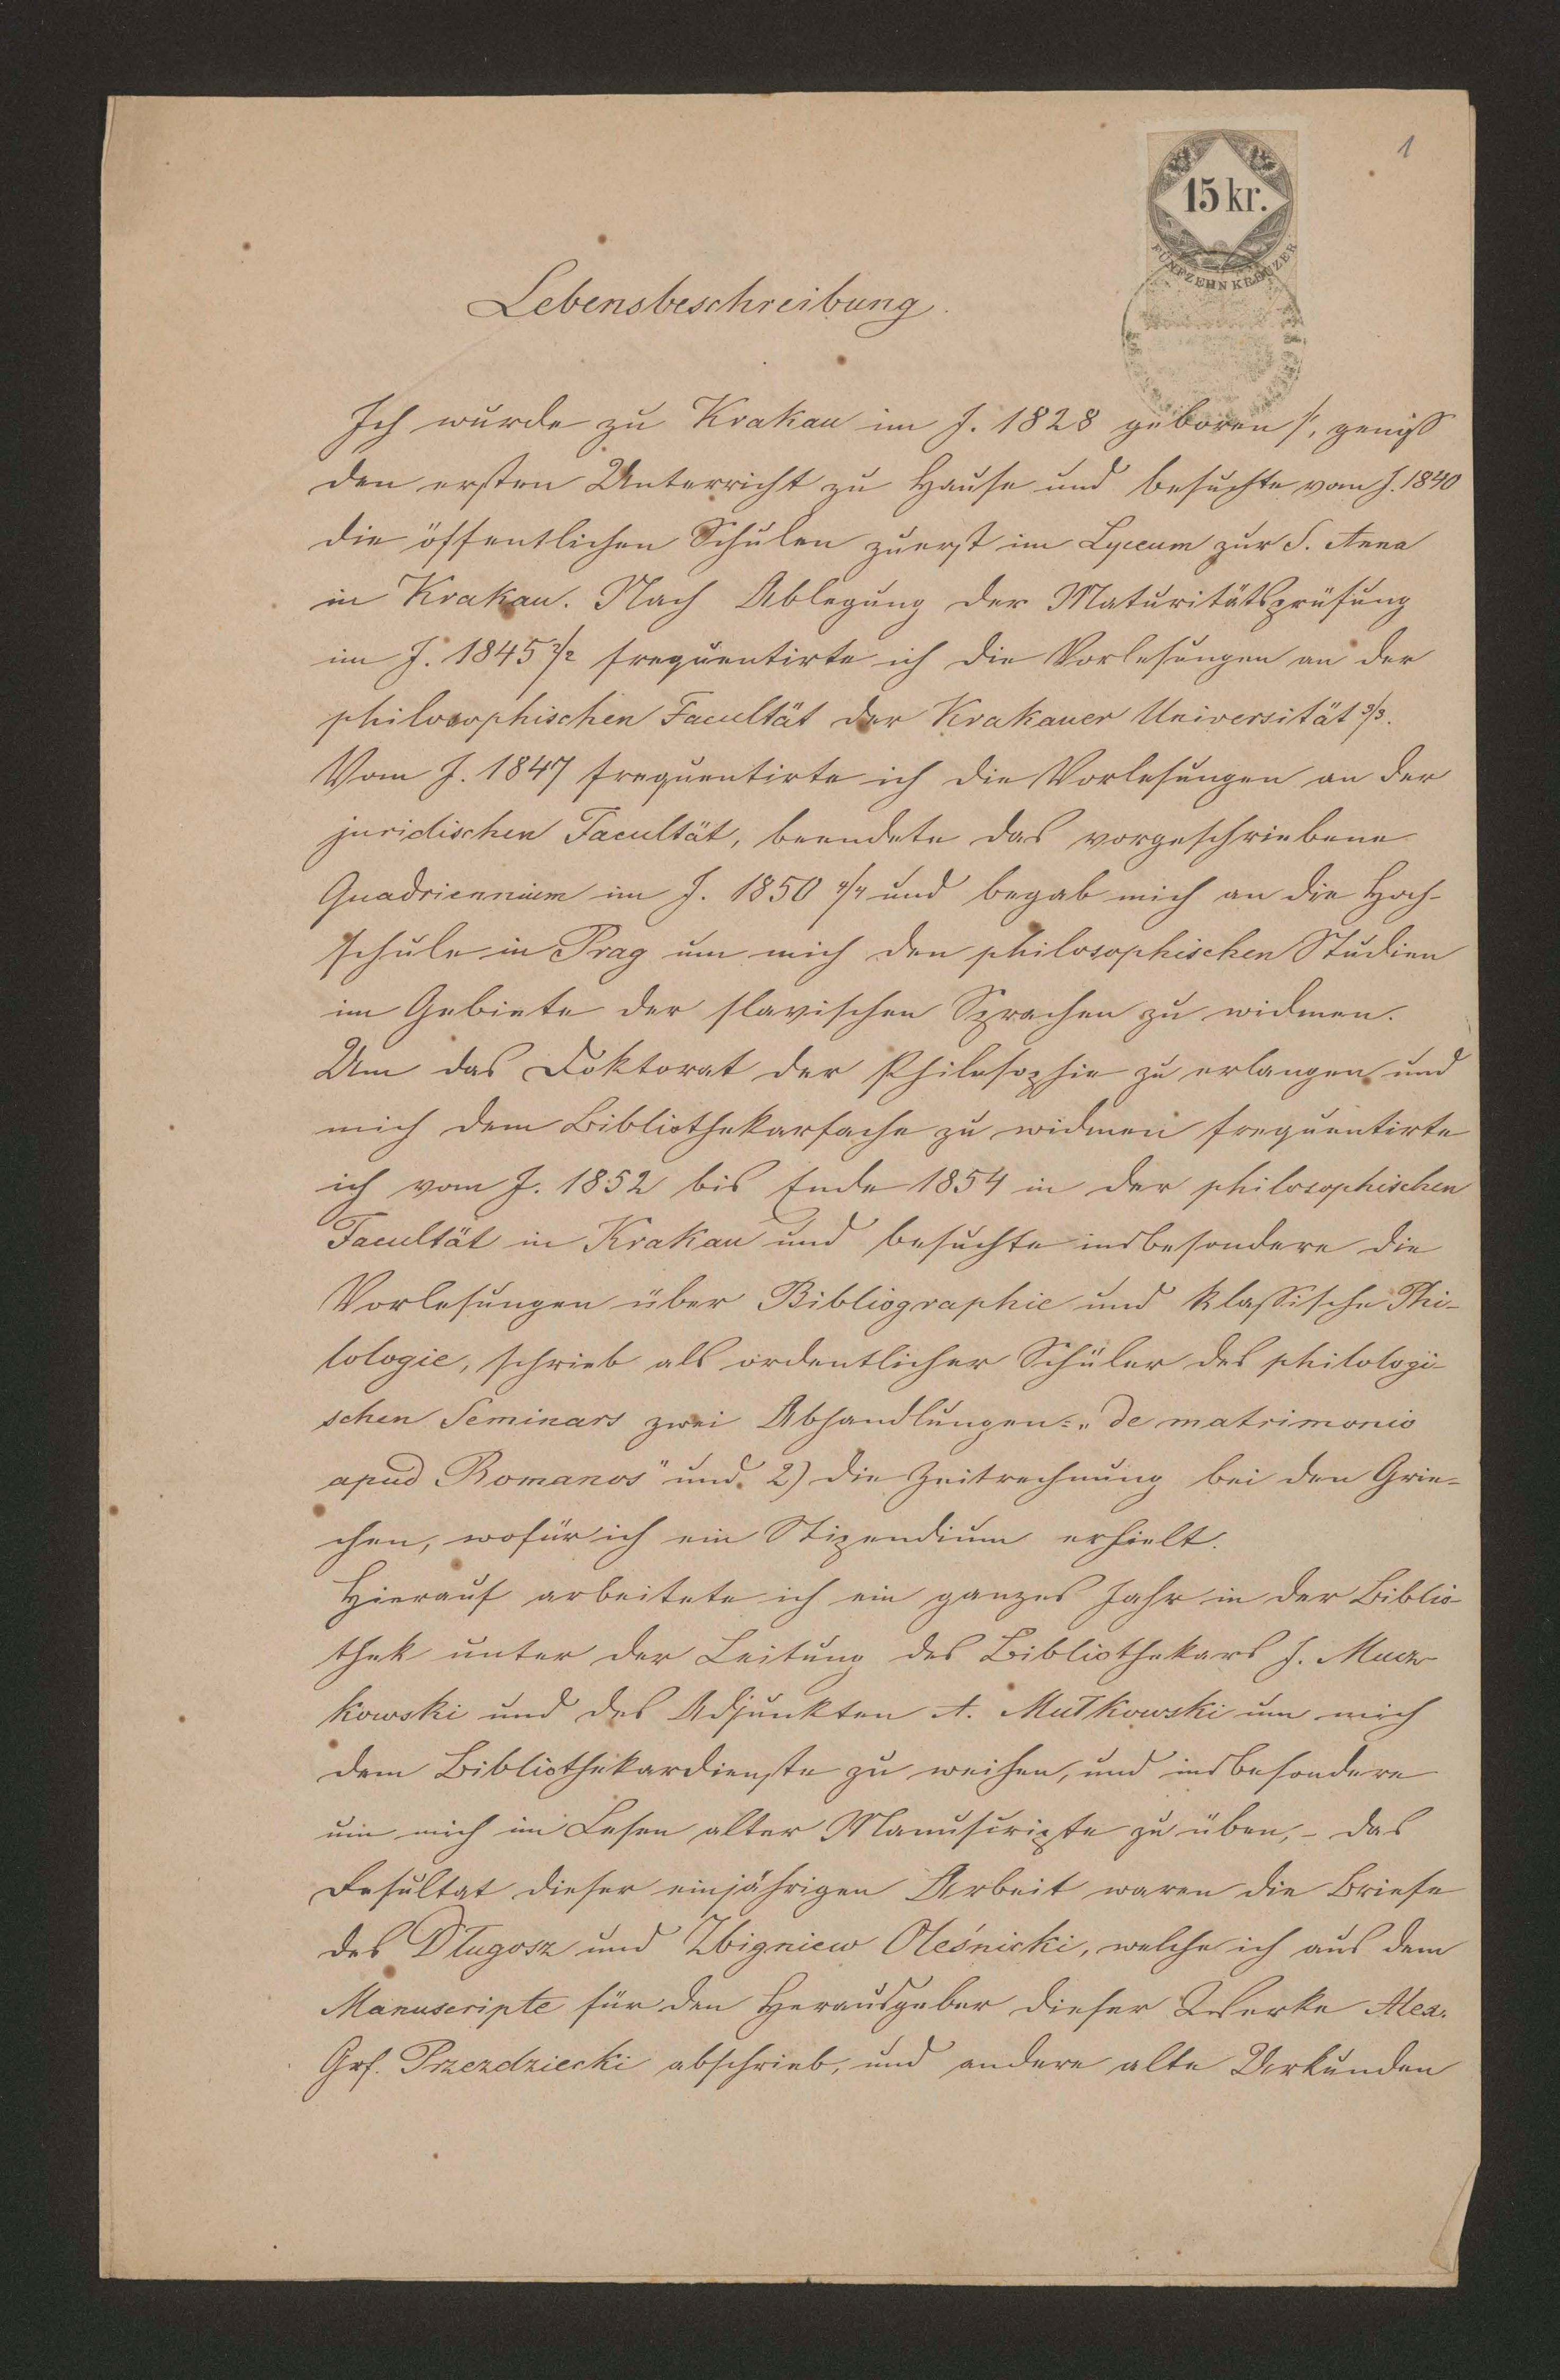 1
15 kr.
FÜNFZEHN KREUZER
Lebensbeschreibung.
Ich wurde zu Krakau im J. 1828 geboren 1/1, geniß
den ersten Unterricht zu Hause und besuchte vom J. 1840
die öffentlichen Schulen zuerst im Lyceum zur S. Anna
in Krakau. Nach Ablegung der Maturitätsprüfung
im J. 1845 2/2 frequentirte ich die Vorlesungen an der
philosophischen Facultät der Krakauer Universität 3/3.
Vom J. 1847 frequentirte ich die Vorlesungen an der
juridischen Facultät, beendete das vorgeschriebene
Quadriennium im J. 1850 4/4 und begab mich an die Hoch-
schule in Prag um mich den philosophischen Studien
im Gebiete der slavischen Sprachen zu widmen.
Um das Doktorat der Philosophie zu erlangen und
mich dem Bibliothekarfache zu widmen frequentirte
ich vom J. 1852 bis Ende 1854 in der philosophischen
Facultät in Krakau und besuchte insbesondere die
Vorlesungen über Bibliographie und klassische Phi-
lologie, schrieb als ordentlicher Schüler des philologi-
schen Seminars zwei Abhandlungen: „de matrimonio
apud Romanos" und 2) die Zeitrechnung bei den Grie-
chen, wofür ich ein Stipendium erhielt.
Hierauf arbeitete ich ein ganzes Jahr in der Biblio-
thek unter der Leitung des Bibliothekars J. Mucz-
kowski und des Adjunkten A. Mułkowski um mich
dem Bibliothekardienste zu weihen, und insbesondere
um mich im Lesen alter Manuscripte zu üben, – das
Resultat dieser einjährigen Arbeit waren die Briefe
des Długosz und Zbigniew Oleśnicki, welche ich aus dem
Manuscripte für den Herausgeber dieser Werke Alex.
Grf. Przezdziecki abschrieb, und andere alte Urkunden